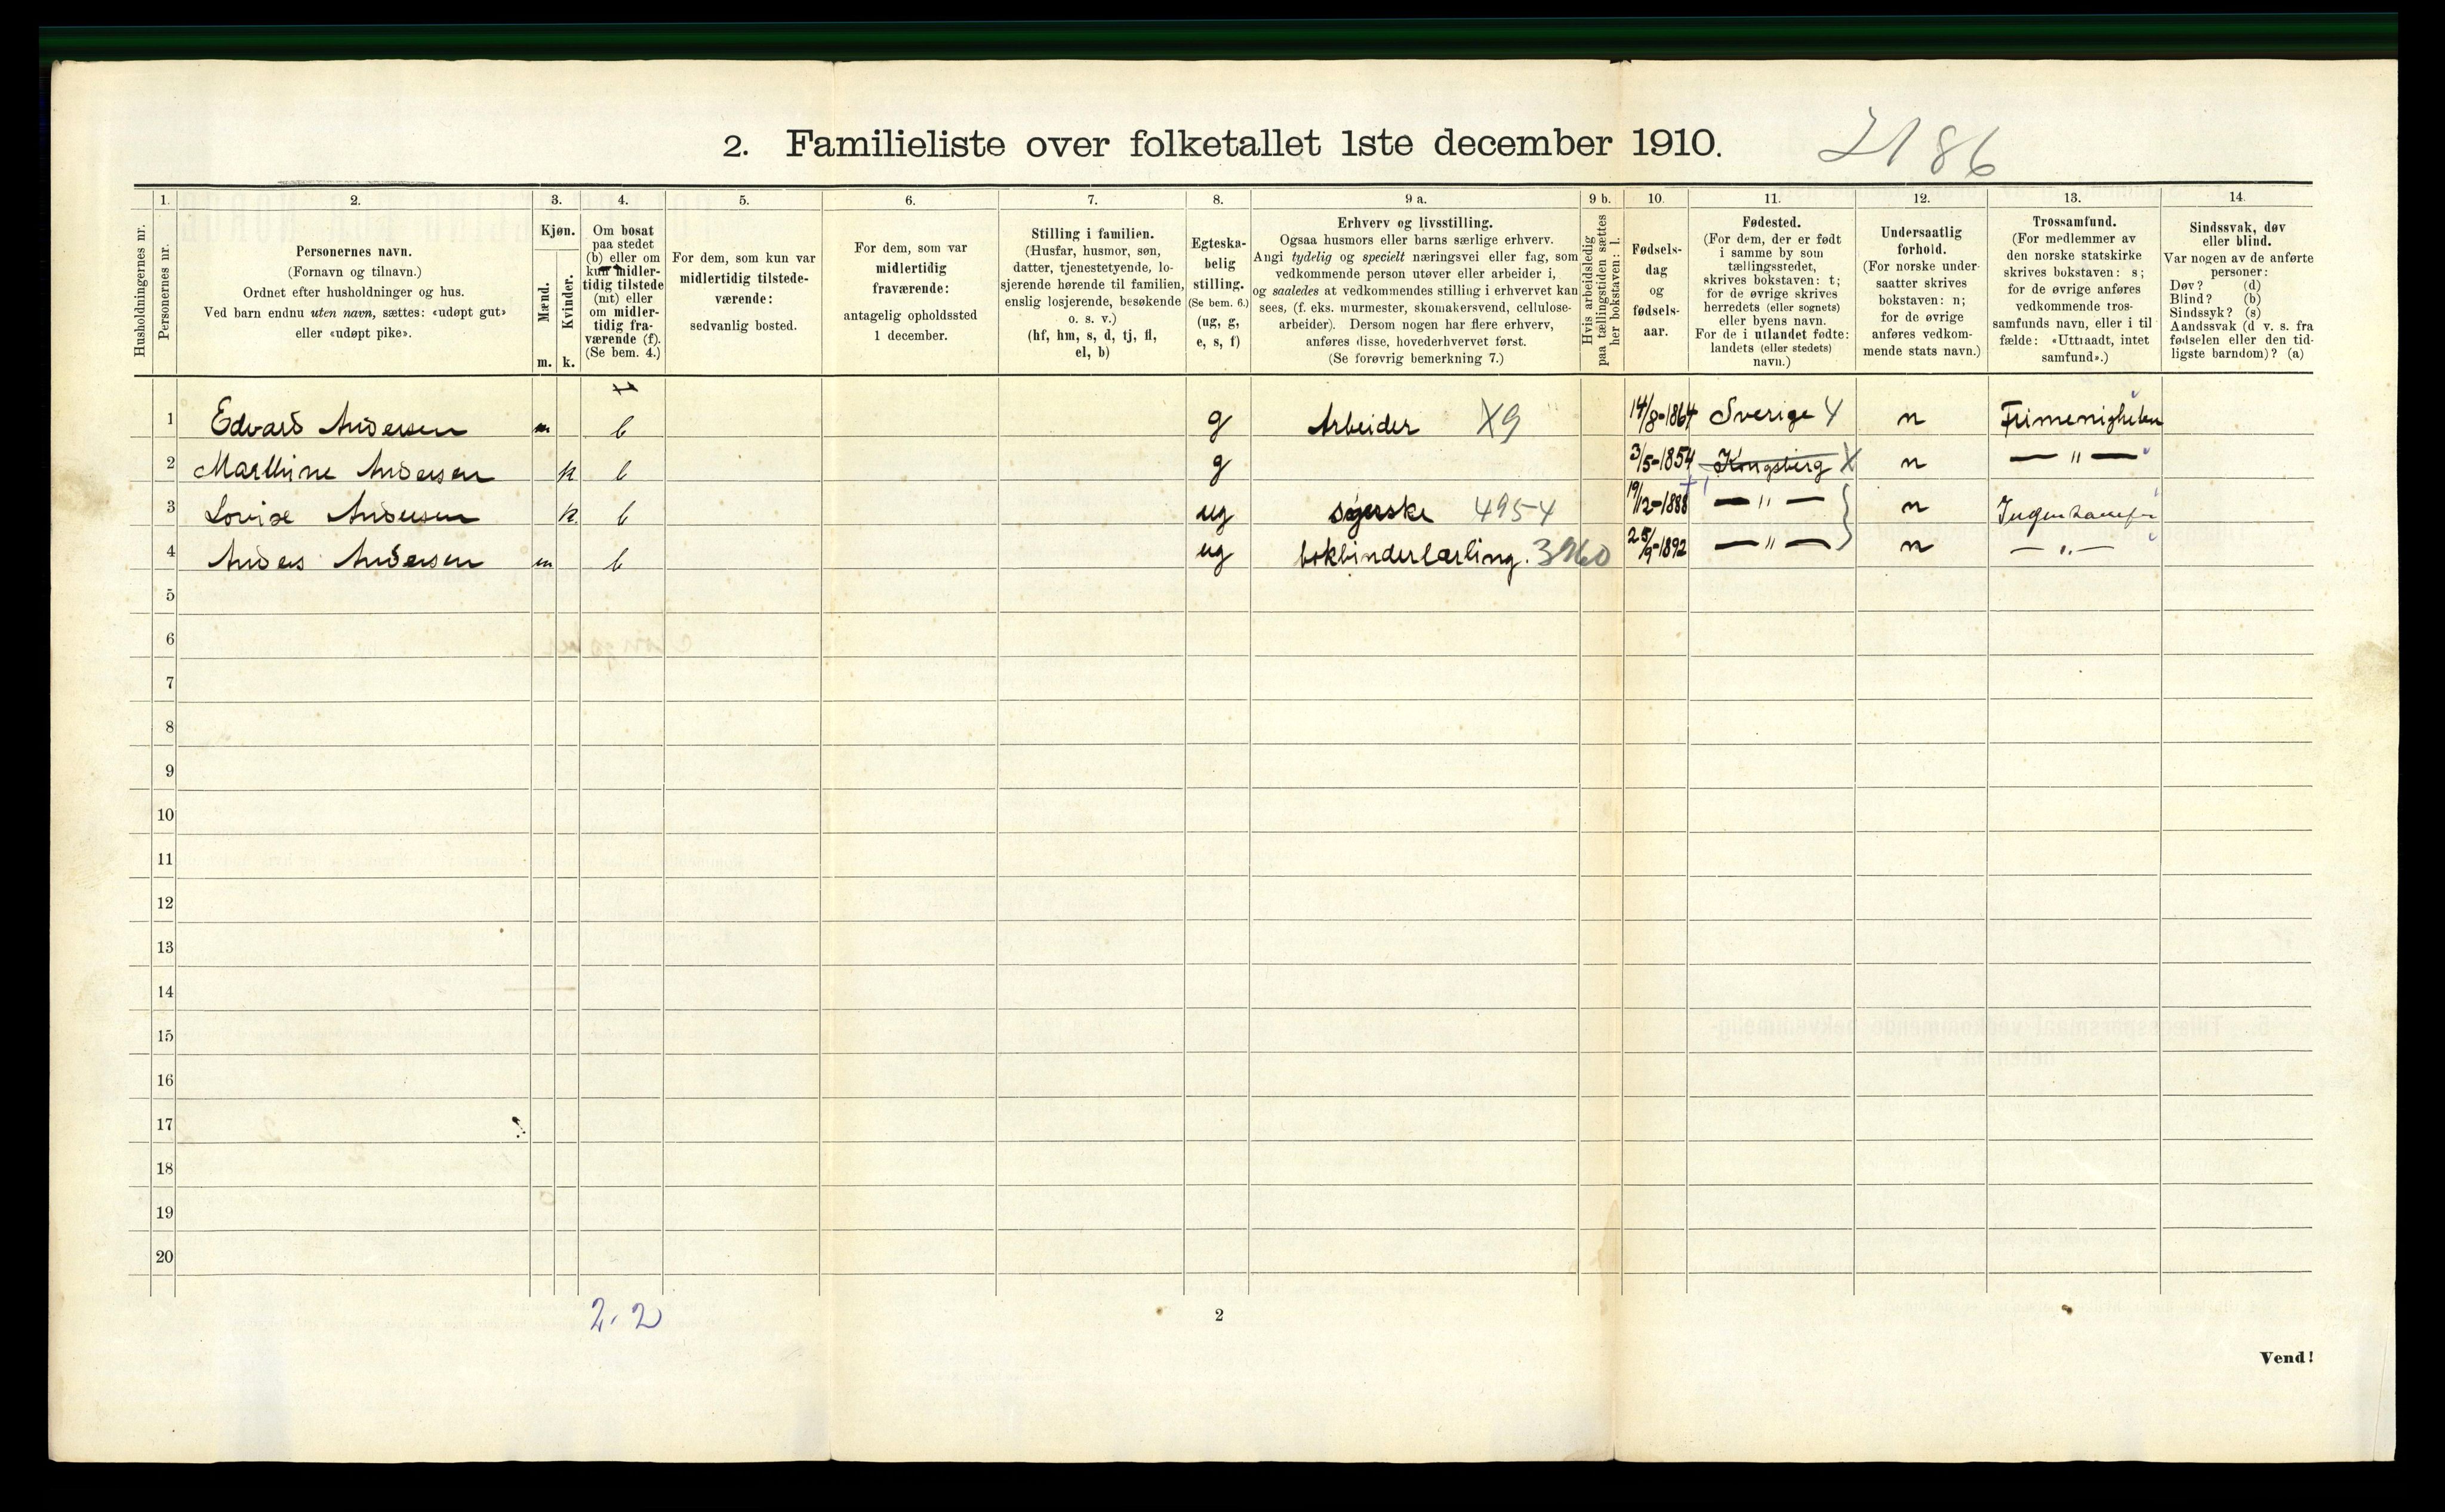 2. Familieliste over folketallet 1ste december 1910.
2186
Husholdningernes nr.
1.
Personernes nr.
2.
Personernes navn.
(Fornavn og tilnavn.)
Ordnet efter husholdninger og hus.
Ved barn endnu uten navn, sættes: «udøpt gut»
eller «udøpt pike».
3.
Kjøn.
Mænd.
Kvinder.
m.
k.
4.
Om bosat
paa stedet
(b) eller om
kun midler-
tidig tilstede
(mt) eller
om midler-
tidig fra-
værende (f).
(Se bem. 4.)
5.
For dem, som kun var
midlertidig tilstede-
værende:
sedvanlig bosted.
6.
For dem, som var
midlertidig
fraværende:
antagelig opholdssted
1 december.
7.
Stilling i familien.
(Husfar, husmor, søn,
datter, tjenestetyende, lo-
sjerende hørende til familien,
enslig losjerende, besøkende
o. s. v.)
(hf, hm, s, d, tj, fl,
el, b)
8.
Egteska-
belig
stilling.
(Se bem. 6.)
(ug, g,
e, s, f)
9 a.
Erhverv og livsstilling.
Ogsaa husmors eller barns særlige erhverv.
Angi tydelig og specielt næringsvei eller fag, som
vedkommende person utøver eller arbeider i,
og saaledes at vedkommendes stilling i erhvervet kan
sees, (f. eks. murmester, skomakersvend, cellulose-
arbeider). Dersom nogen har flere erhverv,
anføres disse, hovederhvervet først.
(Se forøvrig bemerkning 7.)
9 b.
Hvis arbeidsledig
paa tællingstiden sættes
her bokstaven: l.
10.
Fødsels-
dag
og
fødsels-
aar.
11.
Fødested.
(For dem, der er født
i samme by som
tællingsstedet,
skrives bokstaven: t;
for de øvrige skrives
herredets (eller sognets)
eller byens navn.
For de i utlandet fødte:
landets (eller stedets)
navn.)
12.
Undersaatlig
forhold.
(For norske under-
saatter skrives
bokstaven: n;
for de øvrige
anføres vedkom-
mende stats navn.)
13.
Trossamfund.
(For medlemmer av
den norske statskirke
skrives bokstaven: s;
for de øvrige anføres
vedkommende tros-
samfunds navn, eller i til-
fælde: «Uttraadt, intet
samfund».)
14.
Sindssvak, døv
eller blind.
Var nogen av de anførte
personer:
Døv? (d)
Blind? (b)
Sindssyk? (s)
Aandssvak (d v. s. fra
fødselen eller den tid-
ligste barndom)? (a)
1 Edvard Andersen m b g Arbeider X9 14/8-1864 Sverige Y n Frimenigheten
2 Andersen k b g 3/5-1854 Kongsberg X n — " —
3 Lovise Andersen k b ug syerske 4954 19/12-1888 — " — n
4 Anders Andersen m b ug bokbinderlærling. 3960 25/9-1892 — " — n — " —
5
6
7
8
9
10
11
12
13
14
15
16
17
18
19
20
2. 2
2
Vend!